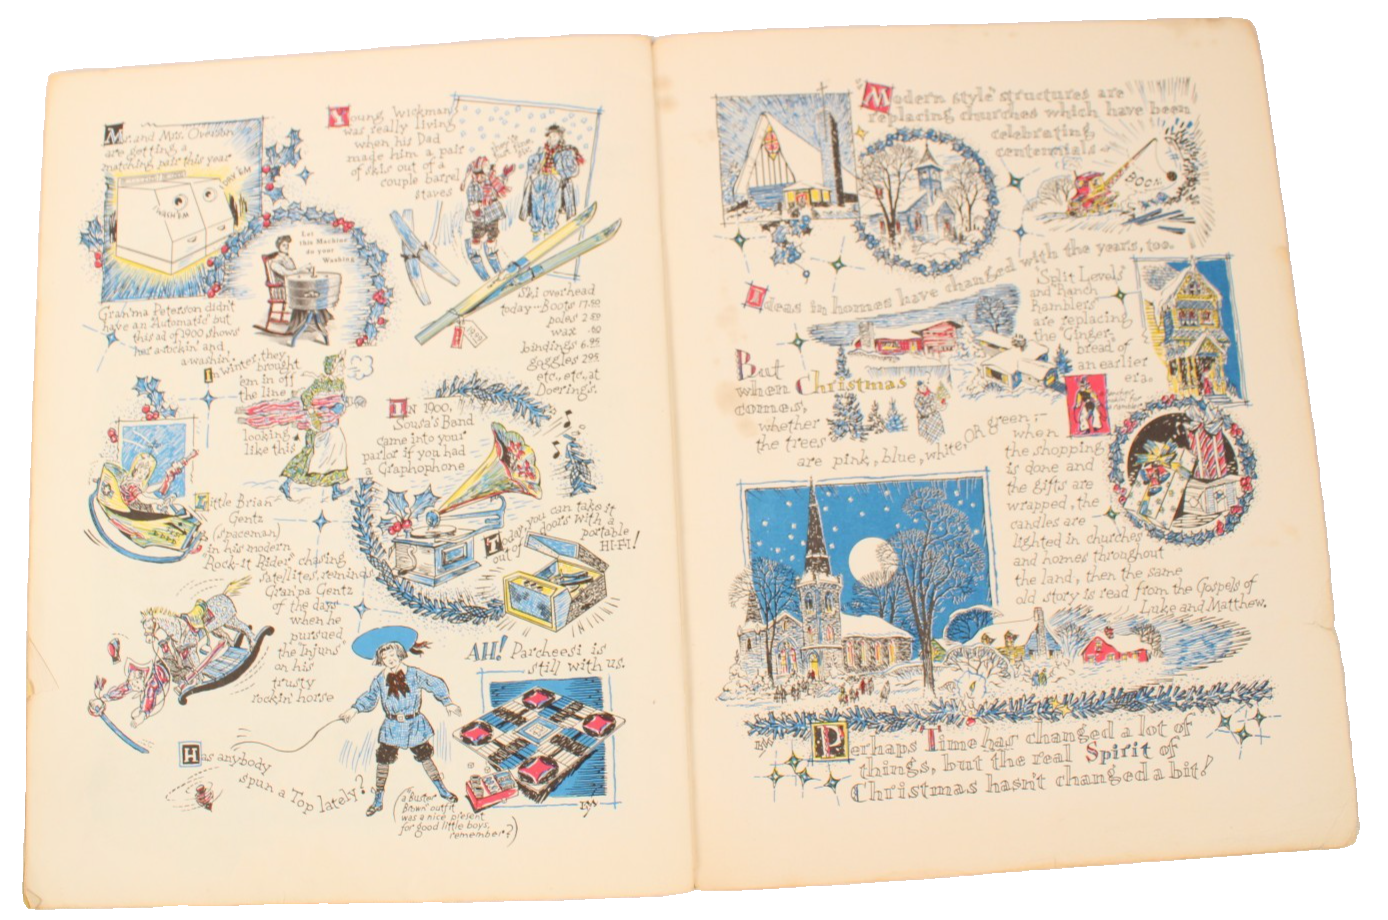 Mr. and Mrs. Overson
are getting a
matching pair this year
WASH 'EM
DRY 'EM
Let
this Machine
do your
Washing
Gran'ma Peterson didn't
have an Automatic but
this ad of 1900 shows
her a rockin' and
a washin'.
In winter, they
brought
'em in off
the line
looking
like this
Young Wickman
was really living
when his Dad
made him a pair
of skis out of a
couple barrel
staves
Ski overhead
today-- Boots 17.50
poles 2.89
wax .60
bindings 6.95
goggles 2.95
etc., etc., at
Doerring's.
In 1900,
Sousa's Band
came into your
parlor if you had
a Graphophone
Today you can take it
out of doors with a
portable
HI-FI!
Little Brian
Gentz
(spaceman)
in his modern
Rock-it Rider chasing
satellites, reminds
Gran'pa Gentz
of the days
when he
pursued
the Injuns
on his
trusty
rockin' horse
Has anybody
spun a Top lately?
(a Buster
Brown outfit
was a nice present
for good little boys,
remember?)
AH! Parcheesi is
still with us.
Modern style structures are
replacing churches which have been
celebrating
centennials.
BOOM
Ideas in homes have changed with the years, too.
Split Levels
and Ranch
ramblers
are replacing
the Ginger-
bread of
an earlier
era.
But
when Christmas
comes,
whether
the trees
are pink, blue, white OR green;--
when
the shopping
is done and
the gifts are
wrapped, the
candles are
lighted in churches
and homes throughout
the land, then the same
old story is read from the Gospels of
Luke and Matthew.
Perhaps Time has changed a lot of
things, but the real Spirit of
Christmas hasn't changed a bit!